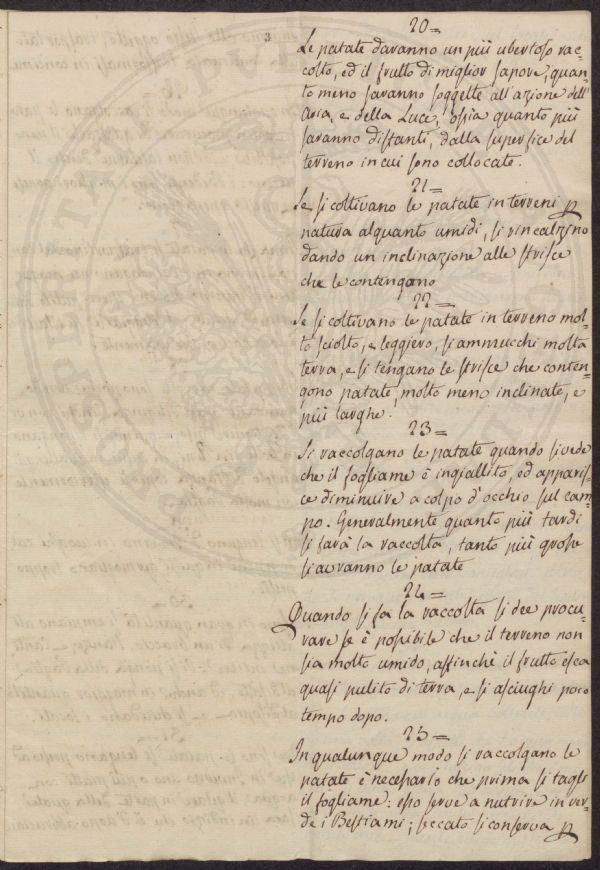 20=
Le patate daranno un più ubertoso rac=
colto, ed il frutto di miglior sapore, quan=
to meno saranno soggette all'azione dell'
Aria, e della Luce, ossia quanto più
saranno distanti, dalla superfice del
terreno in cui sono collocate.
21=
Se si coltivano le patate in terreni p
natura alquanto umidi, si rincalzino
dando un inclinazione alle strisce
che le contengano
22=
Se si coltivano le patate in terreno mol=
to sciolto, e leggiero, si ammucchi molta
terra, e si tengano le strisce che conten=
gono patate, molto meno inclinate, e
più larghe.
23=
Si raccolgano le patate quando si vede
che il fogliame è ingiallito, ed apparis=
ce diminuire a colpo d'occhio sul cam=
po. Generalmente quanto più tardi
si farà la raccolta, tanto più grosse
si avranno le patate
24=
Quando si fa la raccolta si dee procu=
rare se è possibile che il terreno non
sia molto umido, affinchè il frutto esca
quasi pulito di terra, e si asciughi poco
tempo dopo.
25=
In qualunque modo si raccolgano le
patate è necessario che prima si tagli
il fogliame: esso serve a nutrire in ver=
de i Bestiami; seccato si conserva p